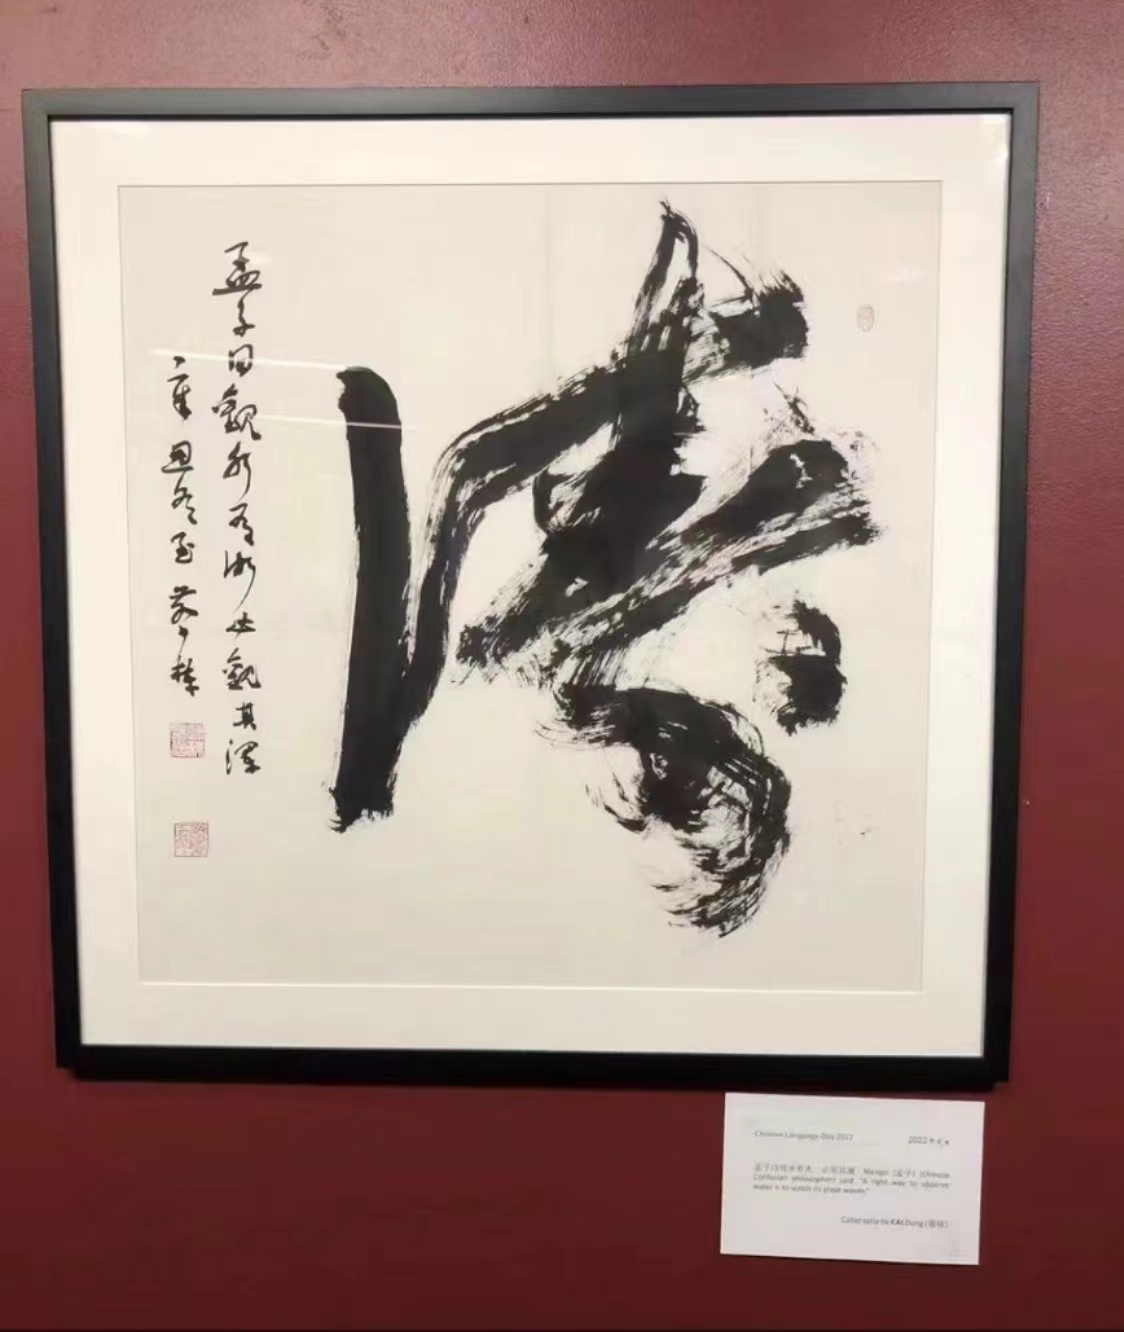 孟子曰觀水有術必觀其瀾
辛丑冬至 蔡棟
Chinese Language Day 2022
2022年
孟子曰观水有术，必观其澜 Mengzi (孟子) (Chinese
Confucian philosopher) said "A right way to observe
water is to watch its great waves."
Calligraphy by CAI Dong (蔡栋)